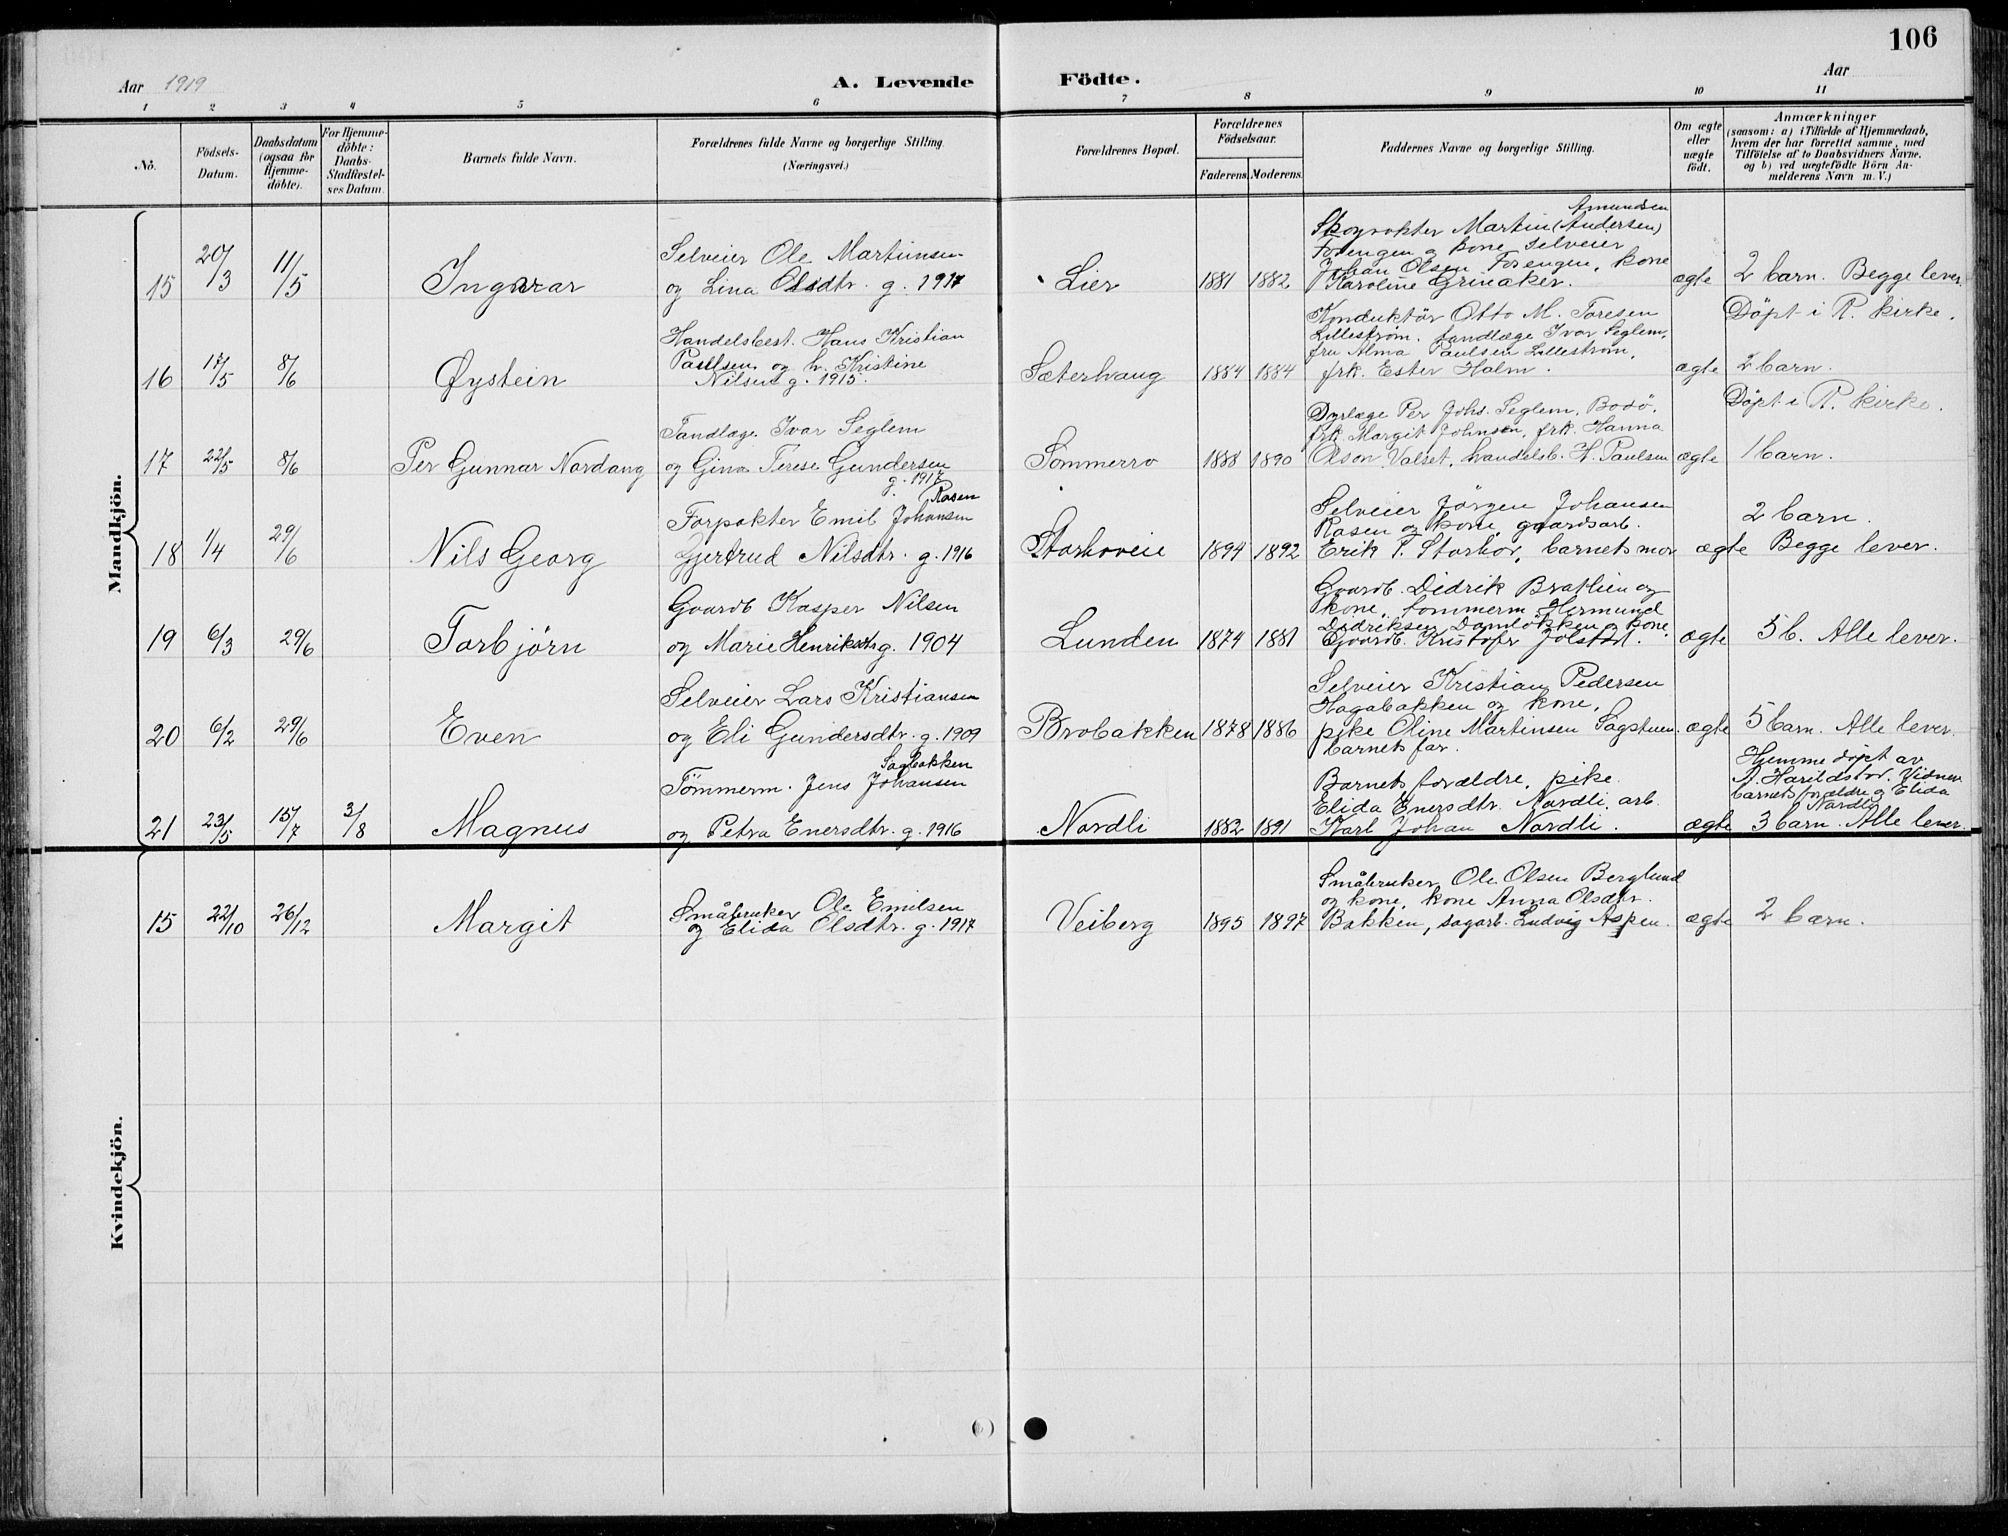 106
Aar 1919
A. Levende Födte.
Aar
1 2 3 4 5 6 7 8 9 10 11
No.
Födsels-Datum.
Daabsdatum (ogsaa for Hjemme-döbte).
For Hjemme-döbte: Daabs-Stadfæstel-ses Datum.
Barnets fulde Navn.
Forældrenes fulde Navne og borgerlige Stilling (Næringsvei.)
Forældrenes Bopæl.
Forældrenes Födselsaar.
Faderens. Moderens.
Faddernes Navne og borgerlige Stilling.
Om ægte eller uægte födt.
Anmærkninger
(saasom: a) i Tilfælde af Hjemmedaab,
hvem der har forrettet samme, med
Tilföielse af to Daabsvidners Navne,
og b) ved uægtefödte Börn An-
melderens Navn m. V.)
Mandkjön.
15 20/3 11/5 Ingvar
Selveier Ole Martinsen
og Lina Olsdtr. g. 1917
Lier 1881 1882
Amundsen
Skogvokter Martin (Andersen)
Forengen og kone, selveier
Johan Olsen Forengen, kone
Karoline Grinaker.
ægte 2 barn. Begge lever.
16 17/5 8/6 Øystein
Handelsbest. Hans Kristian
Paulsen og h. Kristine
Nilsen g. 1915.
Sæterhaug 1884 1884
Konduktör Otto M. Toresen
Lillestrøm, tandlæge Ivar Seglem,
fru Alma Paulsen Lillestrøm,
frk. Ester Holm.
ægte
Döpt i R. kirke.
2 barn.
17 22/5 8/6 Per Gunnar Nordang
Tandlæge Ivar Seglem
og Gina Terese Gundersen
g. 1917
Sommerro 1888 1890
Dyrlæge Per Johs. Seglem, Bodö,
frk. Margit Johnsen, frk. Hanna
Olson Valset, handelsb. H. Paulsen
ægte
Döpt i R. kirke.
1 barn.
18 1/4 29/6 Nils Georg
Rasen
Forpakter Emil Johansen
Gjertrud Nilsdtr. g. 1916
Storhoveie 1894 1892
Selveier Jörgen Johansen
Rasen og kone, gaardsarb.
Erik P. Storhov, barnets mor
ægte
2 barn.
Begge lever.
19 6/3 29/6 Torbjörn
Gaardb Kasper Nilsen
og Marie Henriksdtr g. 1904
Lunden 1874 1881
Gaardb. Didrik Bratlien og
kone, tommerm. Hermund
Didriksen Damløkken og kone,
Gaardb. Kristofer Jolstad.
ægte 5 b. Alle lever.
20 6/2 29/6 Even
Selveier Lars Kristiansen
og Eli Gundersdtr. g. 1909
Brobakken 1878 1886
Selveier Kristian Pedersen
Hagabakken og kone,
pike Oline Martinsen Sagstuen,
barnets far.
ægte 5 barn. Alle lever.
21 23/5 15/7 3/8 Magnus
Sagbakken
Tömmerm. Jens Johansen
og Petra Enersdtr. g. 1916
Nordli 1882 1891
Barnets forældre, pike
Elida Enersdtr. Nordli, arb.
Karl Johan Nordli.
ægte
Hjemme döpt av
Vidner
barnets forældre og Elida
Nordli
3 barn. Alle lever.
Kvindekjön.
15 22/10 26/12 Margit
Småbruker Ole Emilsen
og Elida Olsdtr. g. 1917
Veiberg 1895 1897
Småbruker Ole Olsen Berglund
og kone, kone Anna Olsdtr.
Bakken, sagarb. Ludvig Aspen.
ægte 2 barn.